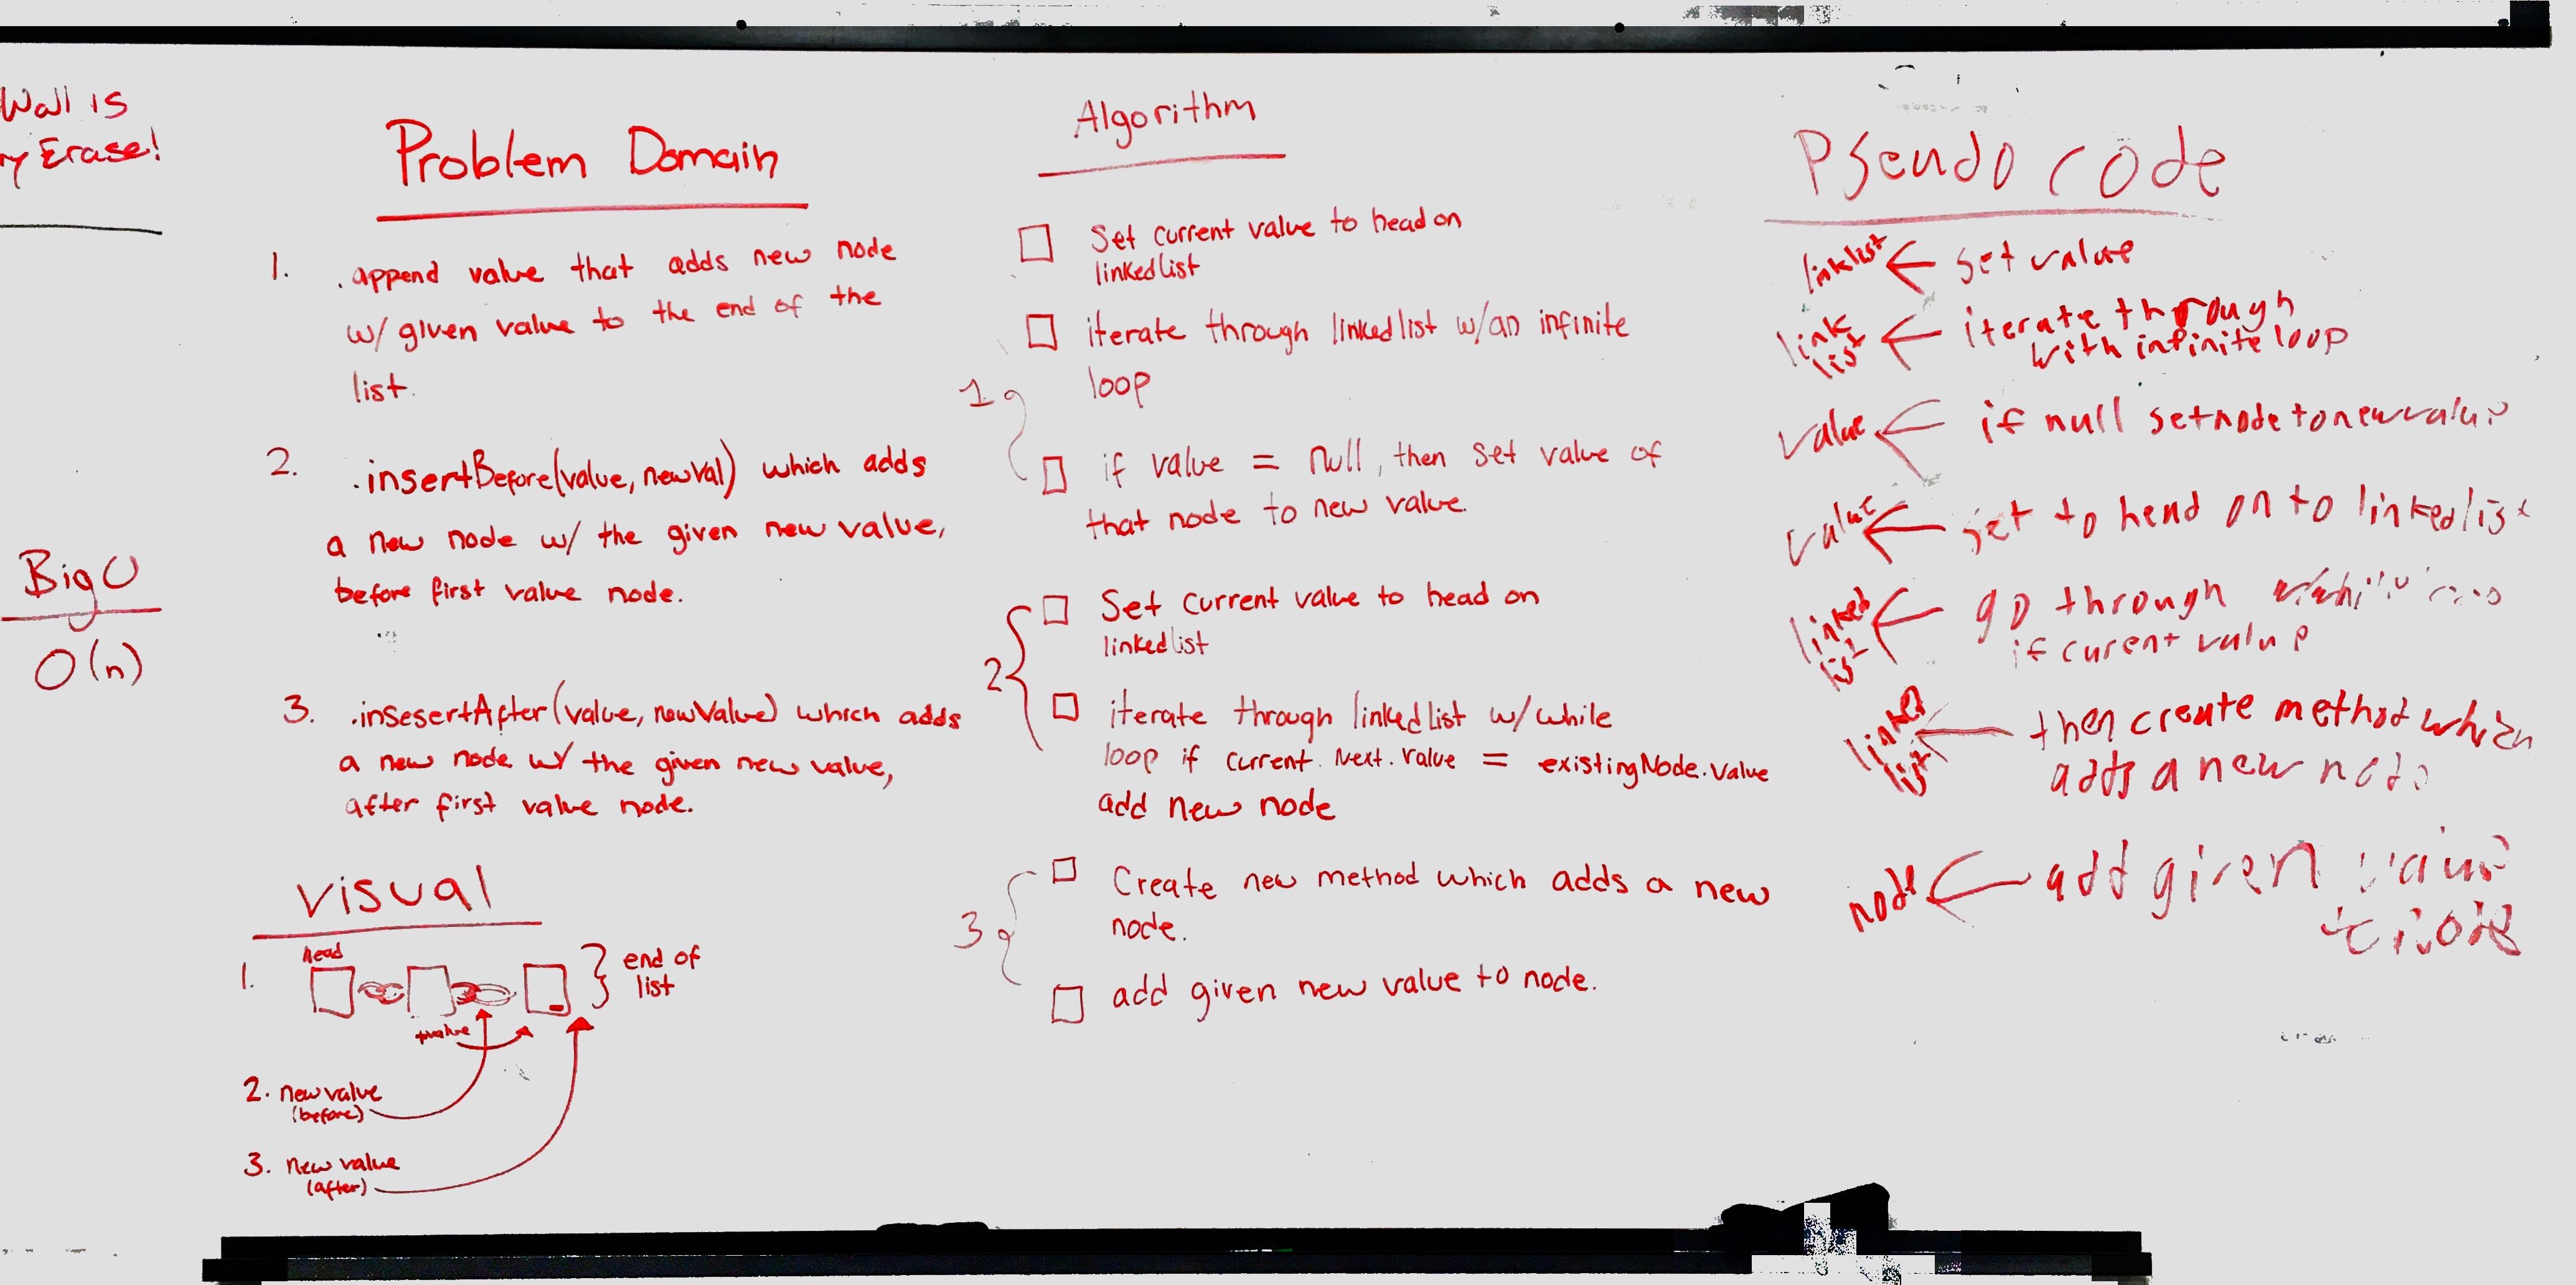 Wall is
ry Erase!
Big O
O(n)
Problem Domain
1. .append value that adds new node
w/ given value to the end of the
list.
2. .insertBefore(value, newVal) which adds
a new node w/ the given new value,
before first value node.
3. .insesertAfter(value, newValue) which adds
a new node w/ the given new value,
after first value node.
visual
head
1.
end of
list
2. new value
(before)
3. new value
(after)
Algorithm
Set current value to head on
linkedlist
iterate through linkedlist w/an infinite
loop
1
if value = null, then set value of
that node to new value.
2
Set current value to head on
linkedlist
iterate through linkedlist w/while
loop if current.next.value = existingNode.value
add new node
3
Create new method which adds a new
node.
add given new value to node.
Pseudo code
linklist ← set value
link list ← iterate through
with infinite loop
value ← if null set node to new value
value ← set to head on to linkedlist
linked list ← go through
if curent value
linked list ← then create method which
adds a new node
node ← add given